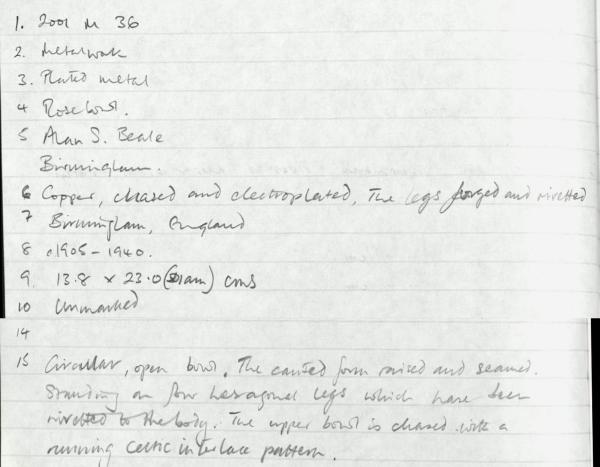 1. 2001 M 36
2. Metalwork
3. Plated metal
4 Rosebowl.
5 Alan S. Beale
Birmingham.
6 Copper, chased and electroplated, The legs forged and rivetted
7 Birmingham, England
8 c1905-1940.
9. 13.8 x 23.0 (diam) cms
10 Unmarked
14
15 Circular, open bowl. The canted form raised and seamed.
Standing on four hexagonal legs which have been
rivetted to the body. The upper bowl is chased with a
running Celtic interlace pattern.